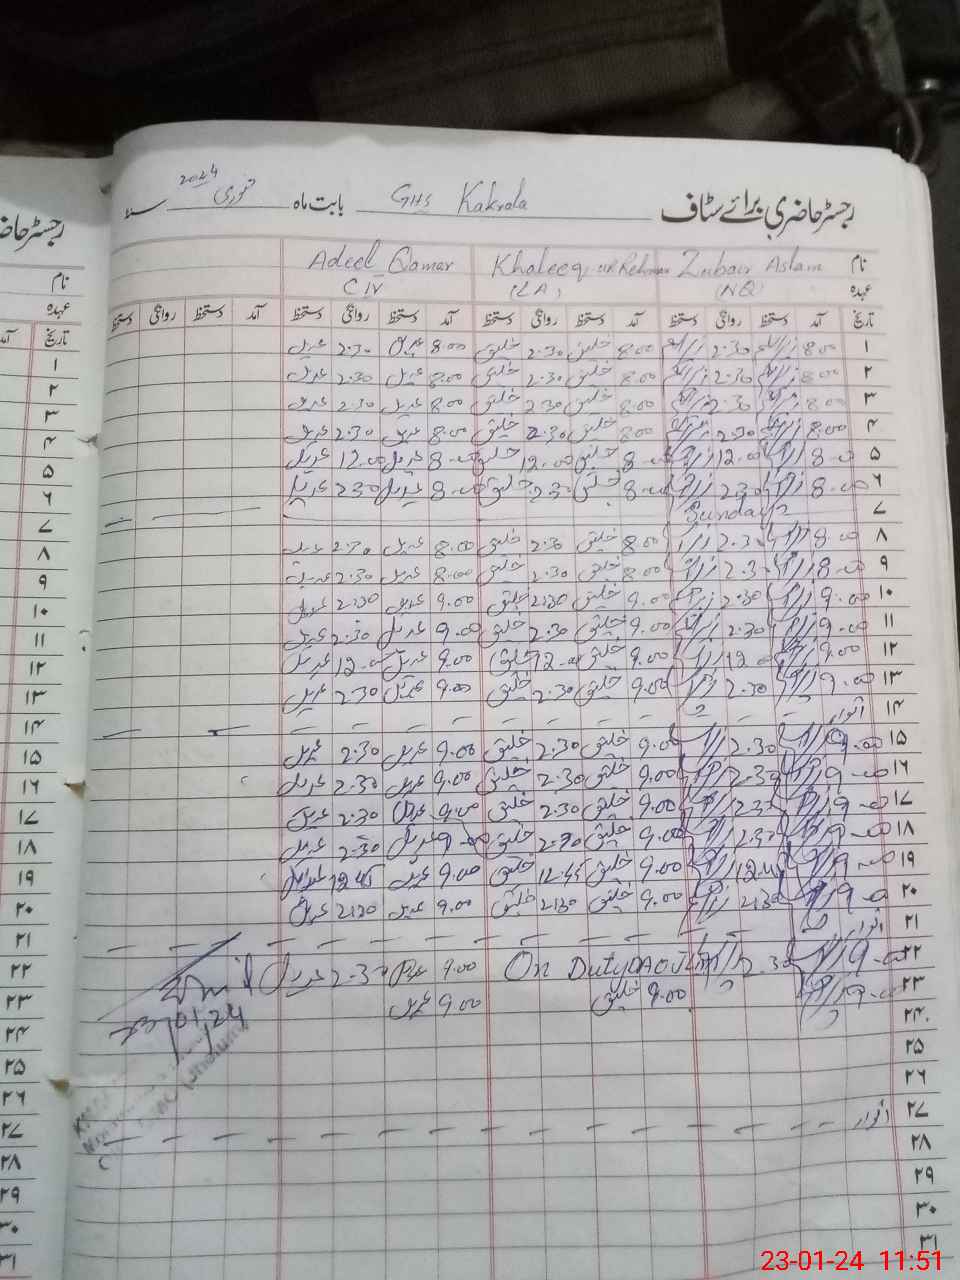 رجسٹر حاضری برائے سٹاف GHS Kakrola بابت ماہ جنوری 2024
نام Zubair Aslam Khaleeq ur Rehman Adeel Qamar
عہدہ (NQ) (LA) C IV
تاریخ آمد دستخط روانگی دستخط آمد دستخط روانگی دستخط آمد دستخط روانگی دستخط آمد دستخط روانگی دستخط
۱ 8.00 2.30 8.00 خلیق 2.30 خلیق 8.00 عدیل 2.30 عدیل
۲ 8.00 2.30 8.00 خلیق 2.30 خلیق 8.00 عدیل 2.30 عدیل
۳ 8.00 2.30 8.00 خلیق 2.30 خلیق 8.00 عدیل 2.30 عدیل
۴ 8.00 2.30 8.00 خلیق 2.30 خلیق 8.00 عدیل 2.30 عدیل
۵ 8.00 12.00 8.00 خلیق 12.00 خلیق 8.00 عدیل 12.00 عدیل
۶ 8.00 2.30 8.00 خلیق 2.30 خلیق 8.00 عدیل 2.30 عدیل
۷ Sunday
۸ 8.00 2.30 8.00 خلیق 2.30 خلیق 8.00 عدیل 2.30 عدیل
۹ 8.00 2.30 8.00 خلیق 2.30 خلیق 8.00 عدیل 2.30 عدیل
۱۰ 9.00 2.30 9.00 خلیق 2.30 خلیق 9.00 عدیل 2.30 عدیل
۱۱ 9.00 2.30 9.00 خلیق 2.30 خلیق 9.00 عدیل 2.30 عدیل
۱۲ 9.00 12.00 9.00 خلیق 12.00 خلیق 9.00 عدیل 12.00 عدیل
۱۳ 9.00 2.30 9.00 خلیق 2.30 خلیق 9.00 عدیل 2.30 عدیل
۱۴ اتوار
۱۵ 9.00 2.30 9.00 خلیق 2.30 خلیق 9.00 عدیل 2.30 عدیل
۱۶ 9.00 2.30 9.00 خلیق 2.30 خلیق 9.00 عدیل 2.30 عدیل
۱۷ 9.00 2.30 9.00 خلیق 2.30 خلیق 9.00 عدیل 2.30 عدیل
۱۸ 9.00 2.30 9.00 خلیق 2.30 خلیق 9.00 عدیل 2.30 عدیل
۱۹ 9.00 12.45 9.00 خلیق 12.45 خلیق 9.00 عدیل 12.45 عدیل
۲۰ 9.00 2.30 9.00 خلیق 2.30 خلیق 9.00 عدیل 2.30 عدیل
۲۱ اتوار
۲۲ 9.00 2.30 On Duty 9.00 عدیل 2.30 عدیل
۲۳ 9.00 9.00 خلیق 9.00 عدیل
23/01/24
۲۴
۲۵
۲۶
۲۷ اتوار
۲۸
۲۹
۳۰
۳۱
23-01-24 11:51